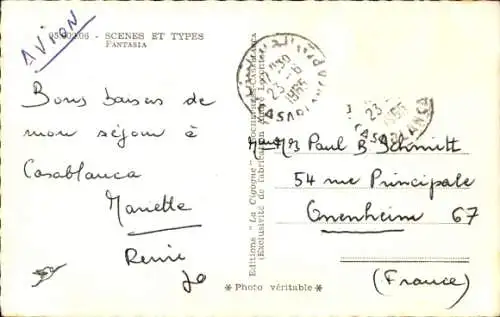 AVION
93.002.06 - SCENES ET TYPES
FANTASIA
Bons baisers de
mon séjour à
Casablanca
Mariette
Rémi
Editions "La Cigogne"
(Exclusivité de fabrication André Leconte)
23 - 6
1965
CASABLANCA
23
1965
CASABLANCA
Paul B Schmitt
54 rue Principale
67
(France)
* Photo véritable *